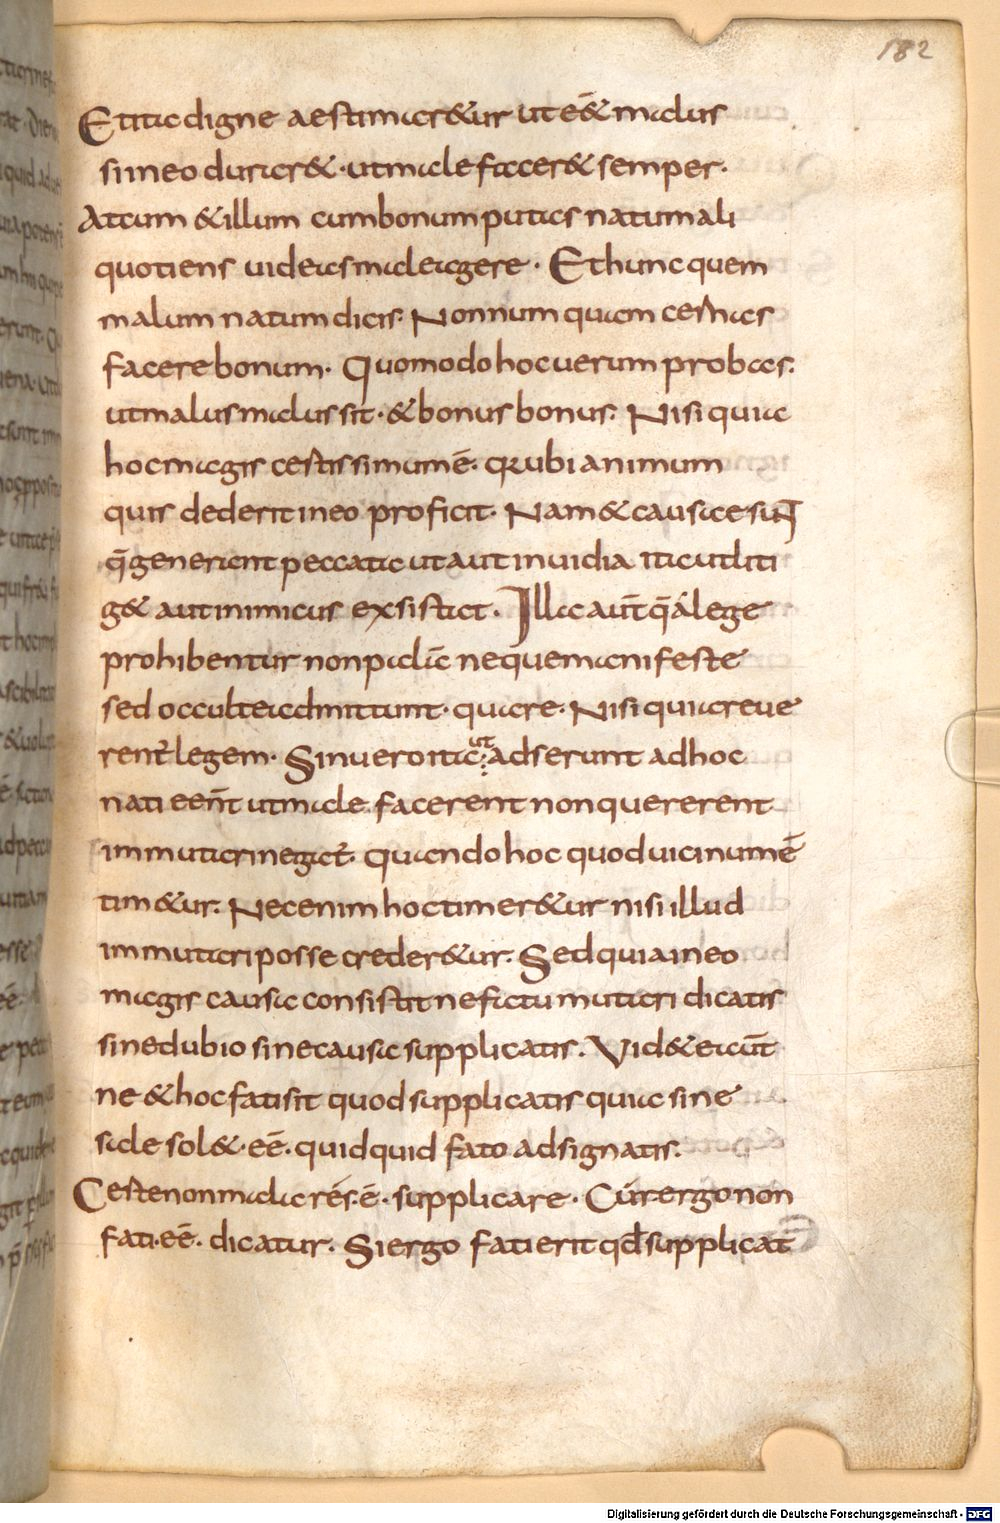 182
Et ita digne aestimaretur ut eēt malus
si in eo duraret · ut male faceret semper ·
At cum et illum cum bonum putas natum ali
quotiens uideas male agere · Et hunc quem
malum natum dicis · Nonnumquam cernas
facere bonum · Quomodo hoc uerum probas ·
ut malus malus sit · et bonus bonus · Nisi quia
hoc magis certissimum ē · qa ubi animum
quis dederit in eo proficit · Nam et causae sunt
q̄ generent peccata ut aut inuidia ita ut liti
get aut inimicus exsistat · Illa aut̄ q̄ a lege
prohibentur non palā neque manifeste
sed occulte admittunt · quare · Nisi quia reue
rent̄ legem · Sin uero ita ut adserunt ad hoc
nati eēnt ut male facerent non quererent
inmutari negat̄ · quando hoc quod uicinum ē
timetur · Nec enim hoc timeretur nisi illud
inmutari posse crederetur · Sed quia in eo
magis causa consistit ne fatū mutari dicatis
sine dubio sine causa supplicatis · Videte aut̄
ne et hoc fati sit quod supplicatis quia sine
sale solet · eē · quidquid fato adsignatis ·
Certe non mala res · ē · supplicare · Cur ergo non
fati · eē · dicatur · Si ergo fati erit qd̄ supplicat
Digitalisierung gefördert durch die Deutsche Forschungsgemeinschaft - DFG